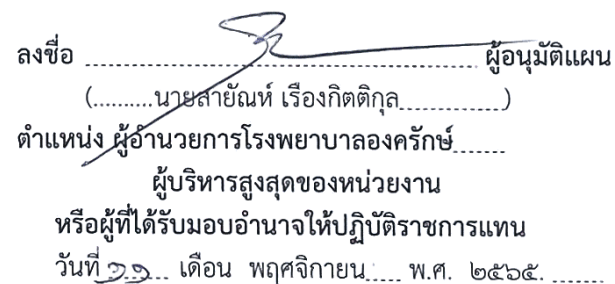 ลงชื่อ ................................................ ผู้อนุมัติแผน
(..........นายสายัณห์ เรืองกิตติกุล.............)
ตำแหน่ง ผู้อำนวยการโรงพยาบาลองครักษ์.......
ผู้บริหารสูงสุดของหน่วยงาน
หรือผู้ที่ได้รับมอบอำนาจให้ปฏิบัติราชการแทน
วันที่ ๑๑ เดือน พฤศจิกายน..... พ.ศ. ๒๕๖๕. .......